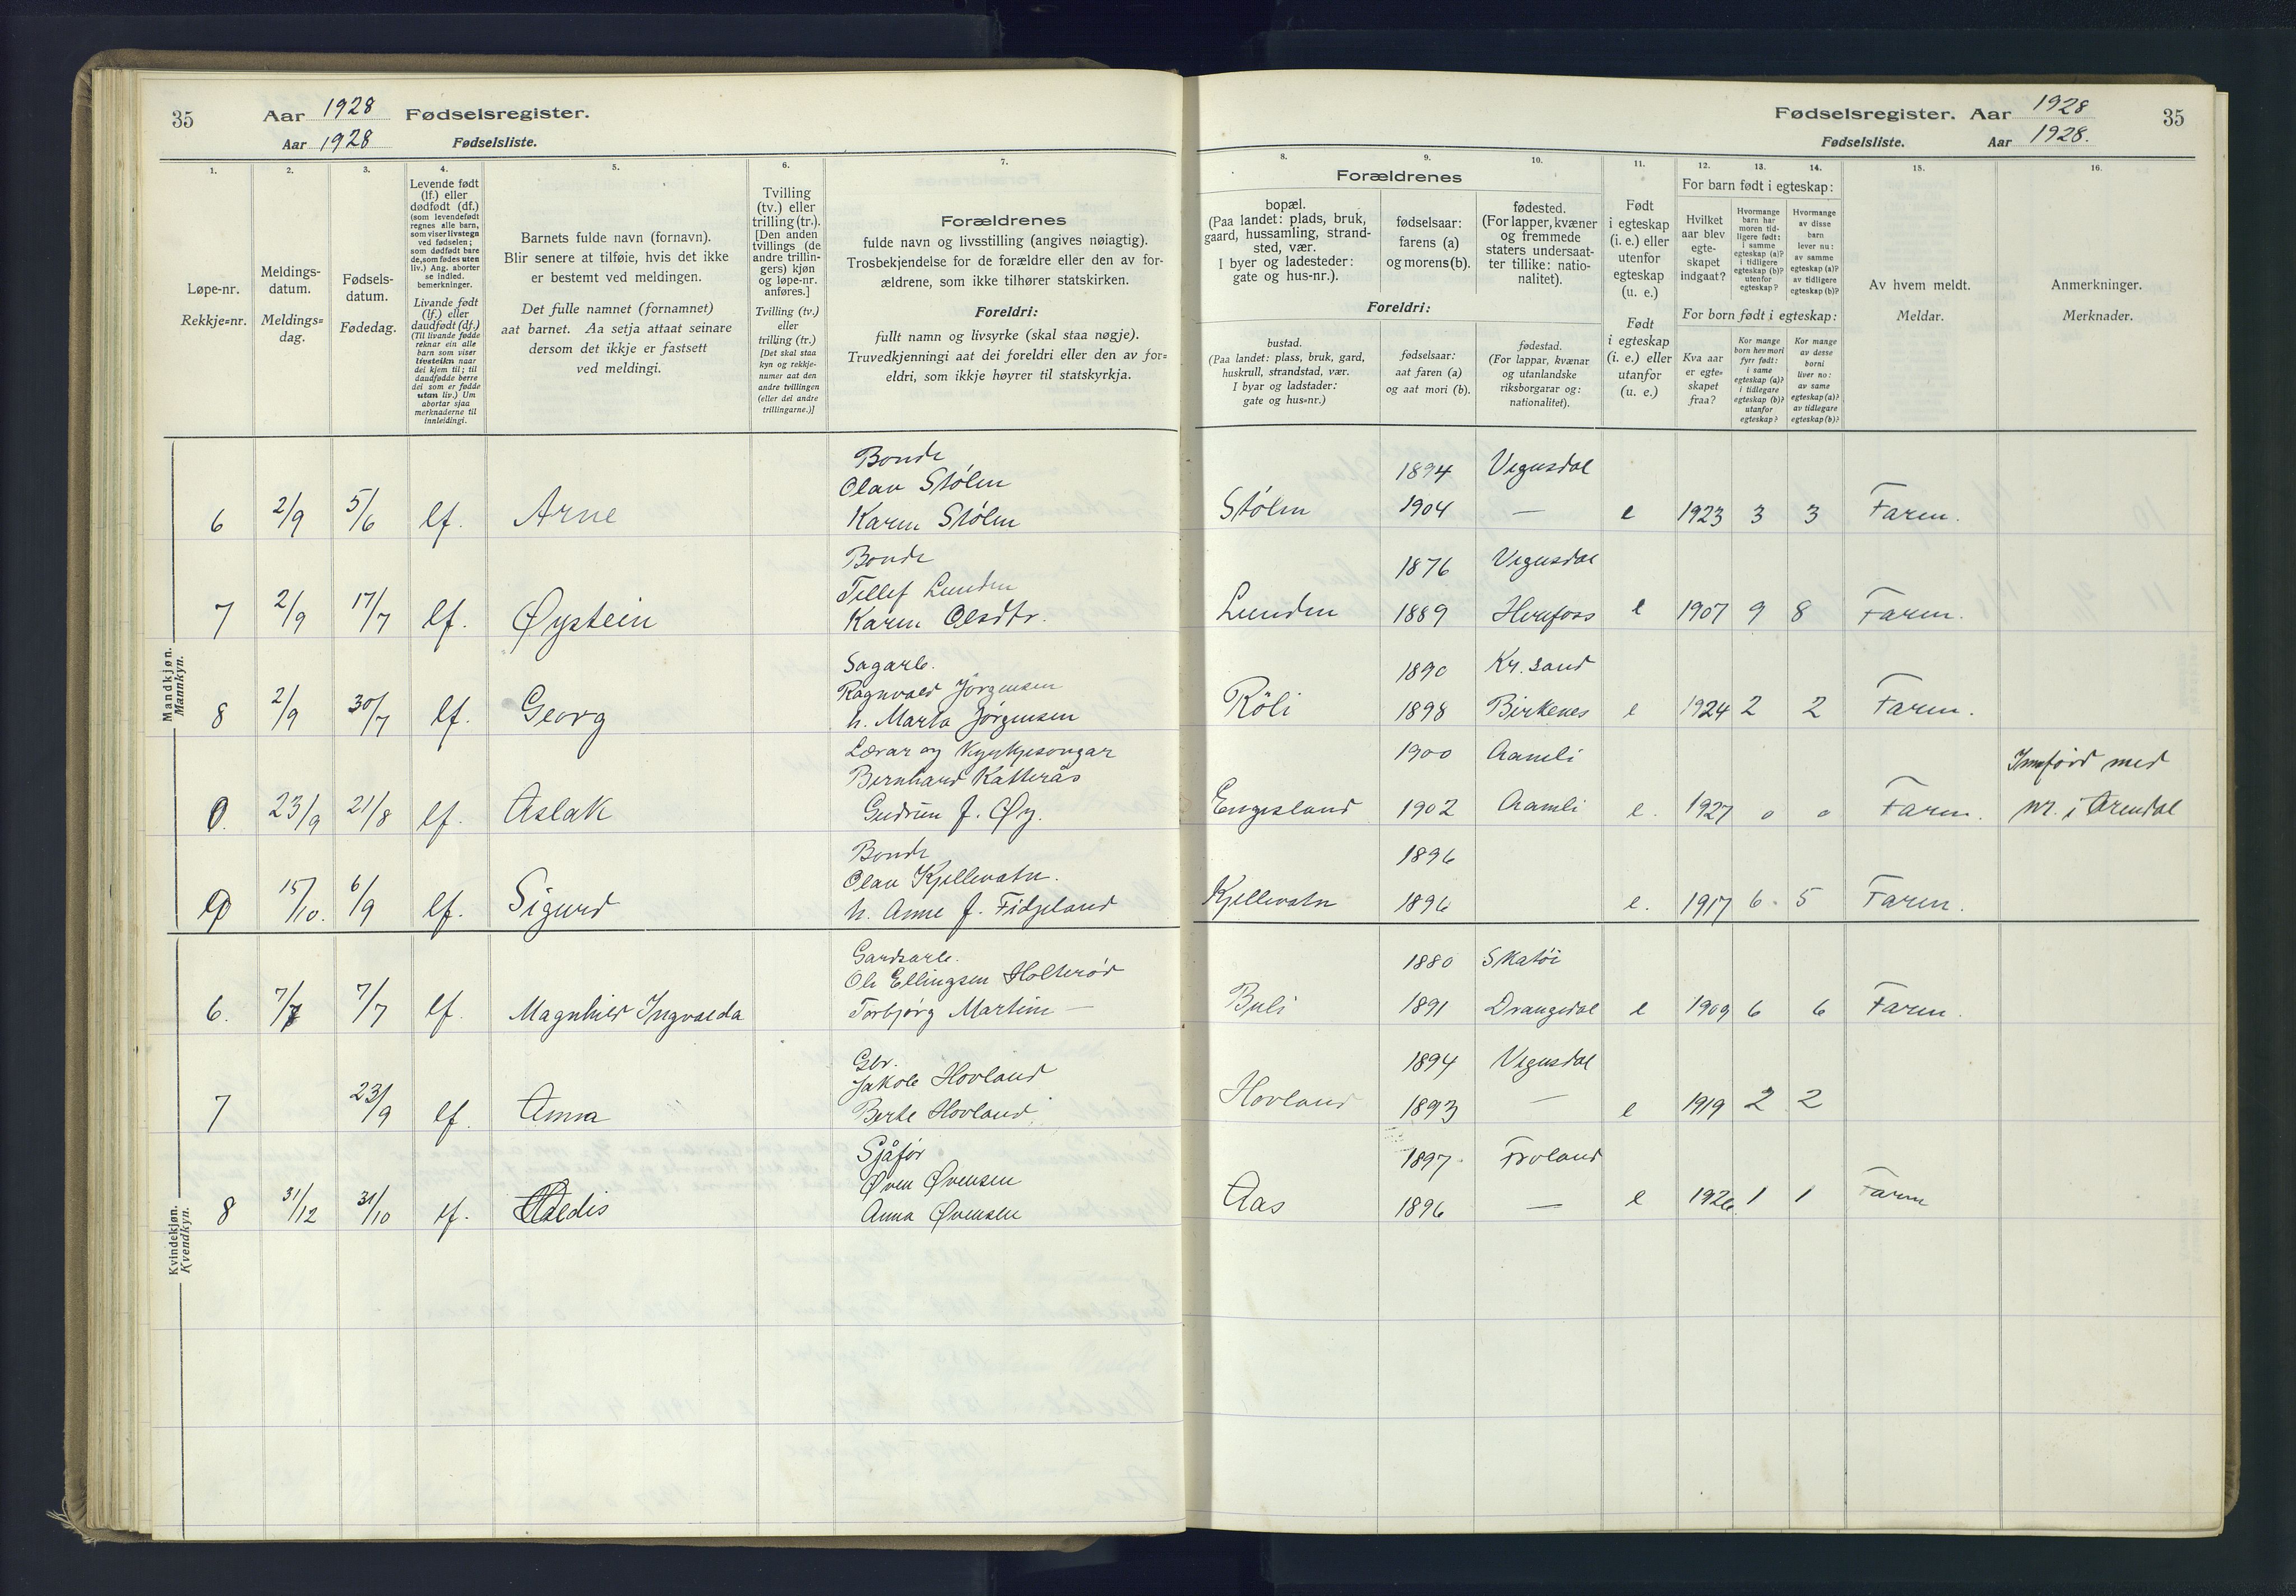 35 Aar 1928 Fødselsregister.
Aar 1928 Fødselsliste.
1.
Løpe-nr.
Rekkje=nr.
2.
Meldings-
datum.
Meldings=
dag.
3.
Fødsels-
datum.
Fødedag.
4.
Levende født
(lf.) eller
dødfødt (df.)
(som levendefødt
regnes alle barn,
som viser livstegn
ved fødselen;
som dødfødt bare
de, som fødes uten
liv.) Ang. aborter
se indled.
bemerkninger.
Livande født
(lf.) eller
daudfødt (df.)
(Til livande fødde
reknar ein alle
barn som viser
livsteikn naar
dei kjem til; til
daudfødde berre
dei som er fødde
utan liv.) Um
abortar sjaa
merknaderne til
innleidingi.
5.
Barnets fulde navn (fornavn).
Blir senere at tilføie, hvis det ikke
er bestemt ved meldingen.
Det fulle namnet (fornamnet)
aat barnet. Aa setja attaat seinare
dersom det ikkje er fastsett
ved meldingi.
6.
Tvilling
(tv.) eller
trilling (tr.).
[Den anden
tvillings (de
andre trillin-
gers) kjøn
og løpe-nr.
anføres.]
Tvilling (tv.)
eller
trilling (tr.)
[Det skal staa
kyn og rekkje-
numer aat den
andre tvillingen
(eller dei andre
trillingarne.)]
7.
Forældrenes
fulde navn og livsstilling (angives nøiagtig).
Trosbekjendelse for de forældre eller den av for-
ældrene, som ikke tilhører statskirken.
Foreldri:
fullt namn og livsyrke (skal staa nøgje).
Truvedkjenningi aat dei foreldri eller den av for=
eldri, som ikkje høyrer til statskyrkja.
Fødselsregister. Aar 1928 35
Fødselsliste. Aar 1928.
8.
Forældrenes
bopæl.
(Paa landet: plads, bruk,
gaard, hussamling, strand-
sted, vær.
I byer og ladesteder:
gate og hus-nr.).
9.
fødselsaar:
farens (a)
og morens (b).
10.
fødested.
(For lapper, kvæner
og fremmede
staters undersaat-
ter tillike: natio-
nalitet).
Foreldri:
bustad.
(Paa landet: plass, bruk, gard,
huskrull, strandstad, vær.
I byar og ladstader:
gate og hus=nr.)
fødselsaar:
aat faren (a)
og aat mori (b).
fødestad.
(For lappar, kvænar
og utanlandske
riksborgarar og:
nationalitet).
11.
Født
i egteskap
(i. e.) eller
utenfor
egteskap
(u. e.)
Født
i egteskap
(i. e.) eller
utanfor
(u. e.)
12. 13. 14.
For barn født i egteskap:
Hvilket
aar blev
egte-
skapet
indgaat?
Hvormange
barn har
moren tid-
ligere født:
i samme
egteskap (a)?
i tidligere
egteskap (b)?
utenfor
egteskap?
Hvormange
av disse
barn
lever nu:
av samme
egteskap (a)?
av tidligere
egteskap (b)?
For born født i egteskap:
Kva aar
er egte=
skapet
fraa?
Kor mange
born hev mori
fyrr født:
i same
egteskap (a)?
i tidlegare
egteskap (b)?
utanfor
egteskap?
Kor mange
av desse
borni
liver no:
av same
egteskap (a)?
av tidlegare
egteskap (b)?
15.
Av hvem meldt.
Meldar.
16.
Anmerkninger.
Merknader.
Mandkjøn.
Mannkyn.
Bonde
Olav Stølen 1894 Vegusdal
6 2/9 5/6 lf. Arne Karen Stølen Stølen 1904 — e 1923 3 3 Faren.
Bonde
Tellef Lunden 1876 Vegusdal
7 2/9 17/7 lf. Øystein Karen Olsdtr. Lunden 1889 Herefoss e 1907 9 8 Faren.
Sagarb.
Ragnvald Jørgensen 1890 Kr. sand
8 2/9 30/7 lf. Georg h. Marta Jørgensen Röli 1898 Birkenes e 1924 2 2 Faren.
Lærar og Kyrkjesongar
Bernhard Katterås 1900 Aamli Innførd med
0. 23/9 21/8 lf. Aslak Gudrun J. Øy. Engesland 1902 Aamli e. 1927 0 0 Faren. nr. i Arendal
Bonde
Olav Kjellevatn. 1896
15/10. 6/9 lf. Sigurd h. Anne J. Fidjeland Kjellevatn 1896 e. 1917 6. 5 Faren.
Kvindekjøn.
Kvendkyn.
Gardsarb.
Ole Ellingsen Holterød 1880 Skatöi
6. 7/7 7/7 lf. Magnhild Ingvalda Torbjørg Martine — Buli 1891 Drangedal e 1909 6 6 Faren.
Gbr.
Jakob Hovland 1894 Vegusdal
7 23/9 lf. Anna Berte Hovland. Hovland 1893 — e 1919 2 2
Sjåfør
Øven Øvensen 1897 Froland
8 31/12 31/10 lf. Aldis Anna Øvensen Aas 1896 — e 1926 1 1 Faren